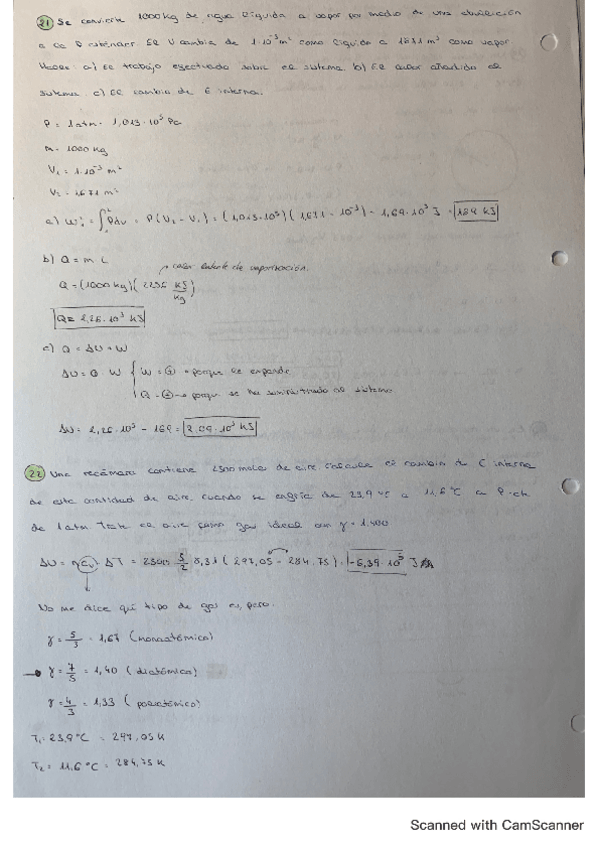 21 Se convierte 1000 kg de agua líquida a vapor por medio de una ebullición
a la P estándar. El V cambia de 1·10⁻³ m³ como líquido a 1671 m³ como vapor
a) El trabajo efectuado sobre el sistema. b) El calor añadido al
sistema. c) El cambio de E interna.
P = 1 atm = 1,013·10⁵ Pa
m = 1000 kg
V₁ = 1·10⁻³ m³
V₂ = 1671 m³
a) W = ∫ P dv = P(V₂ - V₁) = (1,013·10⁵)(1,671 - 10⁻³) = 1,69·10⁵ J = 169 kJ
b) Q = m L
calor latente de vaporización.
Q = (1000 kg)(2256 kJ/kg)
Q = 2,26·10³ kJ
c) Q = ΔU + W
ΔU = Q - W { W = ⊕ → porque se expande
Q = ⊕ → porque se ha suministrado al sistema
ΔU = 2,26·10³ - 169 = 2,09·10³ kJ
22 Una recámara contiene 2500 moles de aire. Calcula el cambio de E interna
de esta cantidad de aire cuando se enfría de 23,9 ºC a 11,6 ºC a P
de 1 atm. Trate el aire como gas ideal con γ = 1.400
ΔU = n Cv ΔT = 2500 5/2 8,31 (297,05 - 284,75) = -6,39·10⁵ J
No me dice qué tipo de gas es, pero:
γ = 5/3 = 1,67 (monoatómico)
→ γ = 7/5 = 1,40 (diatómico)
γ = 4/3 = 1,33 (poliatómico)
T₁ = 23,9 ºC = 297,05 K
T₂ = 11,6 ºC = 284,75 K
Scanned with CamScanner